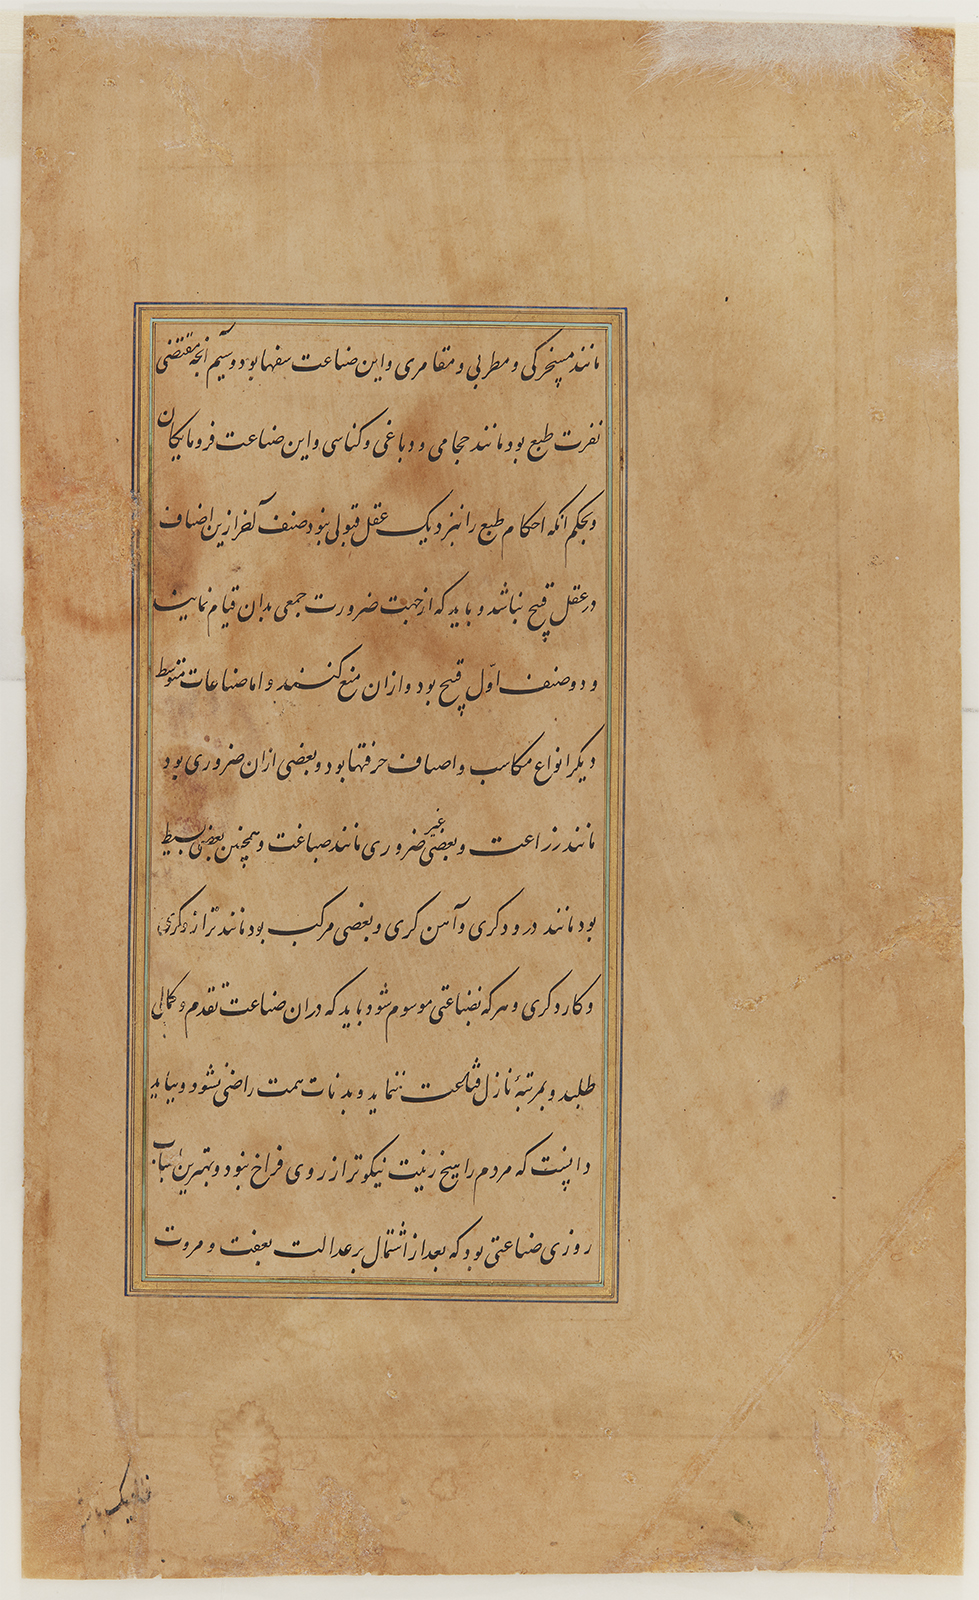 مانند مسخرکی و مطربی و مقامری و این صناعت سفها بود و سیم آنجه مقتضی
نفرت طبع بود مانند حجامی و دباغی و کناسی و این صناعت فرومایکان
و بحکم انکه احکام طبع را نبزدیک عقل قبولی نبود صنف آخر ازین اصناف
در عقل قبیح نباشد و باید که از جهت ضرورت جمعی بدان قیام نمایند
و دو صنف اوّل قبیح بود و ازان منع کنند و اما صناعات متوسط
دیکر انواع مکاسب و اصناف حرفتها بود و بعضی ازان ضروری بود
مانند زراعت و بعضی غیر ضروری مانند صباغت و همچنین بعضی بسیط
بود مانند درودکری و آهن کری و بعضی مرکب بود مانند ترازوکری
و کاردکری و هرکه بصناعتی موسوم شود باید که دران صناعت تقدم و کمالی
طلبد و بمرتبهٔ نازل قناعت ننماید و بدنات همت راضی نشود و بباید
دانست که مردم را هیچ زینت نیکوتر از روی فراخ نبود و بهترین اسباب
روزی صناعتی بود که بعد از اشتمال بر عدالت بعفت و مروت